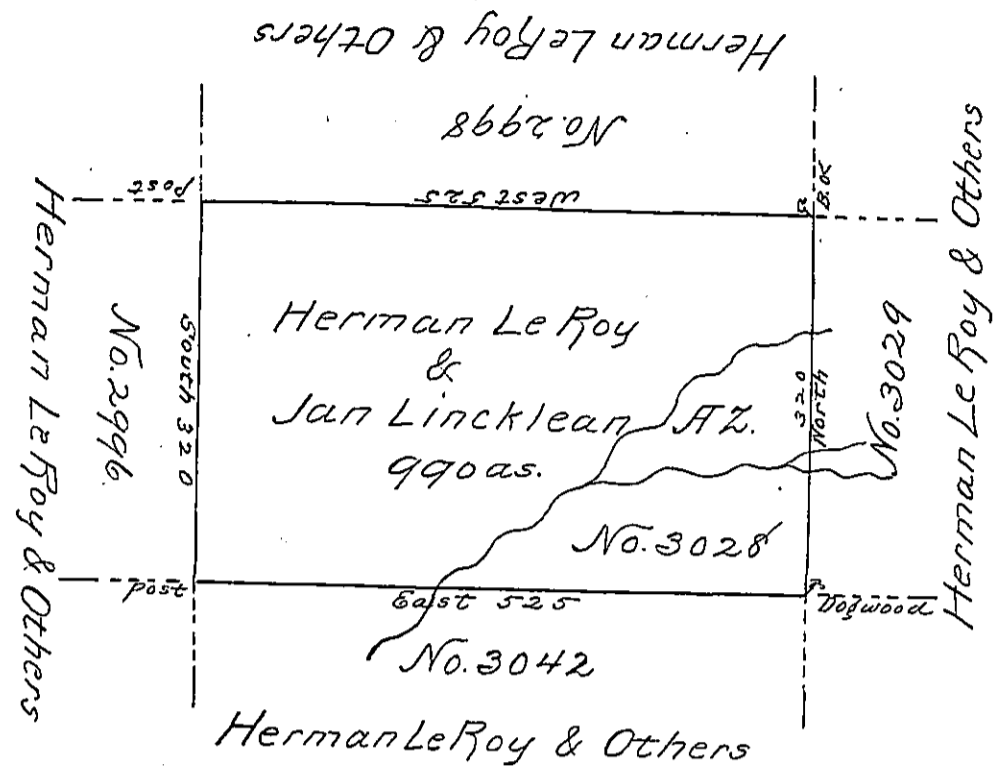 Herman LeRoy & Others
No. 2998
Post
West 525
B.O.
Herman LeRoy & Others
No. 2996
South 320
Herman Le Roy
&
Jan Lincklean
990 as.
AZ.
No. 3028
320
North
No. 3029
Herman Le Roy & Others
Post
East 525
P.
Dogwood
No. 3042
Herman LeRoy & Others